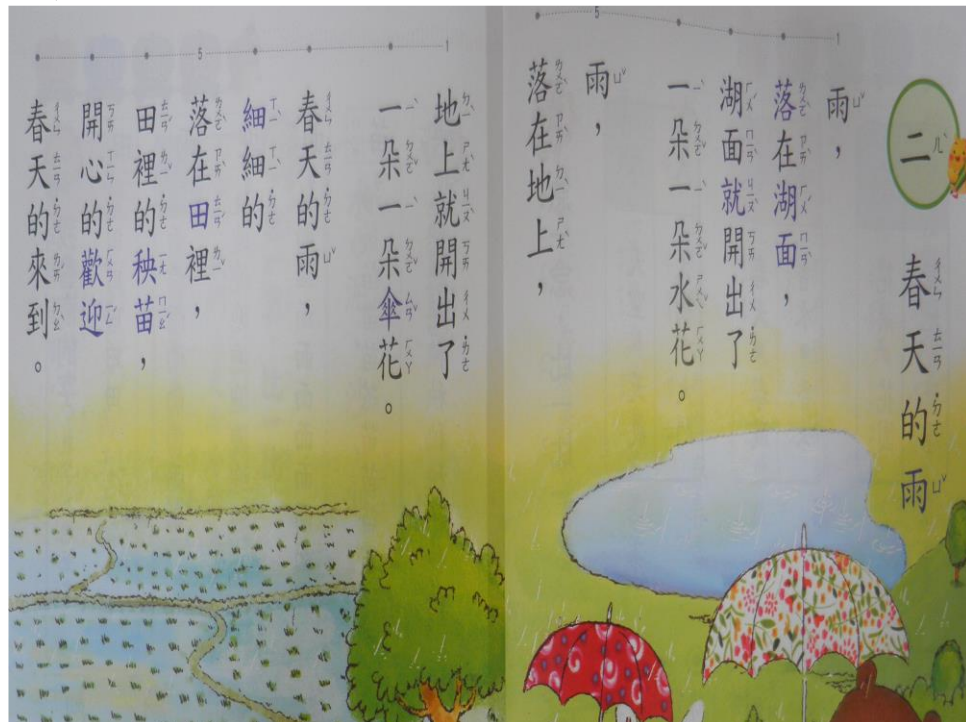 二 春天的雨
1
5
雨，
落在湖面，
湖面就開出了
一朵一朵水花。
雨，
落在地上，
1
5
地上就開出了
一朵一朵傘花。
春天的雨，
細細的
落在田裡，
田裡的秧苗，
開心的歡迎
春天的來到。